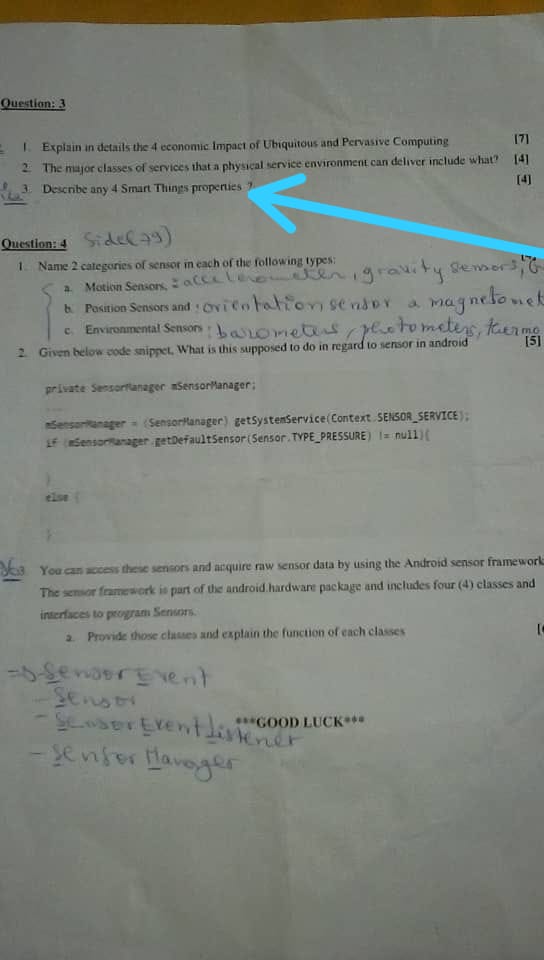 Question: 3
1. Explain in details the 4 economic Impact of Ubiquitous and Pervasive Computing [7]
2. The major classes of services that a physical service environment can deliver include what? [4]
3. Describe any 4 Smart Things properties ? [4]
Question: 4 Side(79)
1. Name 2 categories of sensor in each of the following types:
a. Motion Sensors, : accelerometer, gravity sensors,
b. Position Sensors and : orientation sensor a magnetomet
c. Environmental Sensors : barometers, photometers, thermo
[5]
2. Given below code snippet, What is this supposed to do in regard to sensor in android
private SensorManager mSensorManager;
...
mSensorManager = (SensorManager) getSystemService(Context.SENSOR_SERVICE);
if (mSensorManager.getDefaultSensor(Sensor.TYPE_PRESSURE) != null){
}
else {
}
3. You can access these sensors and acquire raw sensor data by using the Android sensor framework
The sensor framework is part of the android.hardware package and includes four (4) classes and
interfaces to program Sensors.
a. Provide those classes and explain the function of each classes
=> - Sensor Event
- Sensor
- Sensor Event Listener
***GOOD LUCK***
- Sensor Manager